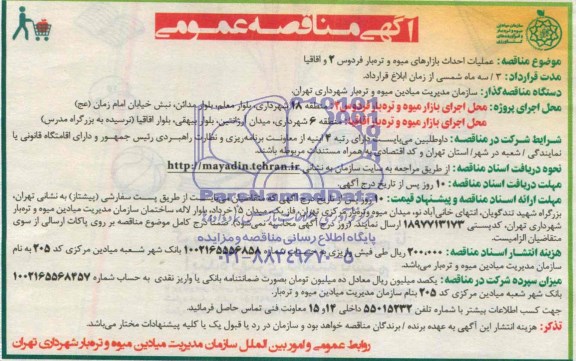 آگهی مناقصه عمومی
سازمان میادین میوه و تره‌بار
موضوع مناقصه: عملیات احداث بازارهای میوه و تره‌بار فردوس ۲ و اقاقیا
مدت قرارداد: ۳ / سه ماه شمسی از زمان ابلاغ قرارداد.
دستگاه مناقصه‌گذار: سازمان مدیریت میادین میوه و تره‌بار شهرداری تهران.
محل اجرای پروژه: محل اجرای بازار میوه و تره‌بار فردوس۲: منطقه ۱۸ شهرداری، بلوار معلم، بلوار مدائن، نبش خیابان امام زمان (عج)
محل اجرای بازار میوه و تره‌بار اقاقیا: منطقه ۶ شهرداری، میدان آرژانتین، بلوار بیهقی، بلوار اقاقیا (نرسیده به بزرگراه مدرس)
شرایط شرکت در مناقصه: داوطلبین می‌بایست دارای رتبه ۴ ابنیه از معاونت برنامه‌ریزی و نظارت راهبردی رئیس جمهور و دارای اقامتگاه قانونی یا
نمایندگی / شعبه در شهر/ استان تهران و کد اقتصادی به همراه مستندات مربوطه باشند.
نحوه دریافت اسناد مناقصه: از طریق مراجعه به سایت سازمان به نشانی http://mayadin.tehran.ir
مهلت دریافت اسناد مناقصه: ۱۰ روز پس از تاریخ درج آگهی.
مهلت ارائه اسناد مناقصه و پیشنهاد قیمت: ۱۰ روز از طریق پست سفارشی (پیشتاز) به نشانی تهران،
بزرگراه شهید تندگویان، انتهای خانی‌آباد نو، میدان میوه و تره‌بار مرکزی تهران، فاز یک میدان ۱۵ خرداد، بلوار لاله، ساختمان سازمان مدیریت میادین میوه و تره‌بار
شهرداری تهران، کدپستی ۱۸۹۷۷۱۳۱۷۳ ارسال نمایند. (روز درج آگهی محاسبه نمی‌شود) ضمناً درج کامل موضوع مناقصه بر روی پاکات ارسالی از سوی
متقاضیان الزامیست.
هزینه انتشار اسناد مناقصه: ۲۰۰.۰۰۰ ریال طی فیش واریزی به حساب شماره ۱۰۰۲۱۶۵۵۶۸۴۵۸ بانک شهر شعبه میادین مرکزی کد ۲۰۵ به نام
سازمان مدیریت میادین میوه و تره‌بار می‌باشد.
میزان سپرده شرکت در مناقصه: یکصد میلیون ریال معادل ده میلیون تومان بصورت ضمانتنامه بانکی یا واریز نقدی به حساب شماره ۱۰۰۲۱۶۵۵۶۸۴۵۷
بانک شهر شعبه میادین مرکزی کد ۲۰۵ بنام سازمان مدیریت میادین میوه و تره‌بار.
جهت کسب اطلاعات بیشتر با شماره تلفن ۵۵۰۱۵۲۳۲ داخلی ۱۴ و ۱۵ معاونت فنی تماس حاصل فرمائید.
تذکر: هزینه انتشار این آگهی به عهده برنده / برندگان مناقصه خواهد بود و سازمان در رد یا قبول یک یا کلیه پیشنهادات مختار می‌باشد.
روابط عمومی و امور بین الملل سازمان مدیریت میادین میوه و تره‌بار شهرداری تهران
ParsNamadData
پایگاه اطلاع رسانی مناقصه و مزایده
۰۲۱-۸۸۳۴۹۶۷۰